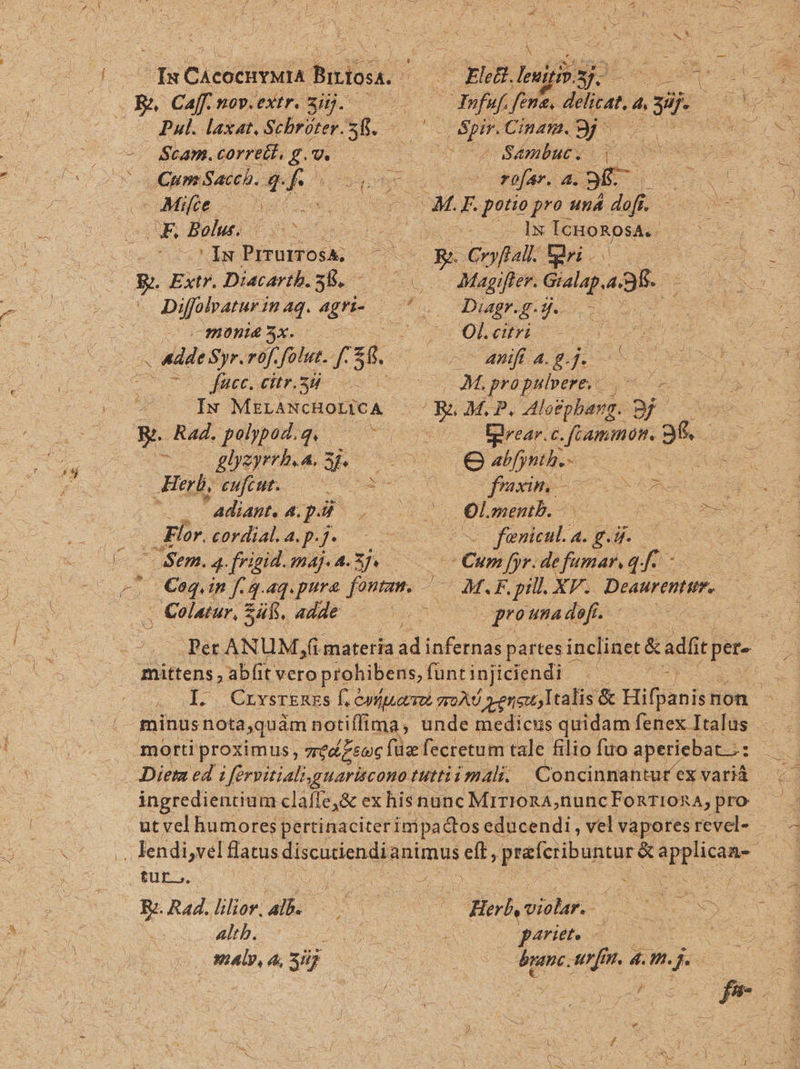 In Cacochymia Biliosa.
℞. Caſſ. nov. extr. ℥iij.
Pul. laxat. Schröter. ʒß.
Scam. correct. g. v.
Cum Sacch. q. ſ.
Miſce
F. Bolus.
In Pituitosa.
℞. Extr. Diacarth. ʒß.
Diſſolvatur in aq. agri-
moniæ ℥x.
adde Syr. roſ. ſolut. ſ. ℥ß.
ſucc. citr. ʒij
In Melancholica
℞. Rad. polypod. q,
glyzyrrh. a, ʒj.
Herb, cuſcut.
adiant. a. p. ij
Flor. cordial. a. p. j.
Sem. 4. frigid. maj. a. ʒj.
Coq. in ſ. q. aq. puræ fontan.
Colatur, ℥iiß, adde
Elect. lenitiv. ʒj.
Infuſ. ſenæ, delicat. a, ʒiij.
Spir. Cinam. ℈j
Sambuc.
roſar. a. ℈ß.
M. F. potio pro unâ doſi.
In Ichorosa.
℞. Cryſtall. 🜿ri
Magiſter. Gialap. a. ℈ß.
Diagr. g. ij.
Ol. citri
aniſi a. g. j.
M. pro pulvere.
℞. M. P. Aloëphang. ℈j
🜿rear. c. ſcammon. ℈ß.
🜔 abſynth.
fraxin.
Ol. menth.
fœnicul. a. g. ij.
Cum ſyr. de fumar. q. ſ.
M. F. pill. XV. Deaurentur.
pro una doſi.
Per ANUM, ſi materia ad infernas partes inclinet & adſit per-
mittens, abſit vero prohibens, ſunt injiciendi
I. Clysteres ſ. ἐνήματα πολύχρηστα, Italis & Hiſpanis non
minus nota, quàm notiſſima, unde medicus quidam ſenex Italus
morti proximus, πράξεως ſuæ ſecretum tale filio ſuo aperiebat:
Dieta ed i ſervitiali, guariscono tutti i mali. Concinnantur ex variâ
ingredientium claſſe, & ex his nunc Mitiora, nunc Fortiora, pro
ut vel humores pertinaciter impactos educendi, vel vapores revel-
lendi, vel flatus discutiendi animus eſt, præſcribuntur & applican-
tur.
℞. Rad. lilior. alb.
alth.
malv, a, ʒiij
Herb, violar.
pariet.
branc. urſin. a. m. j.
fu-